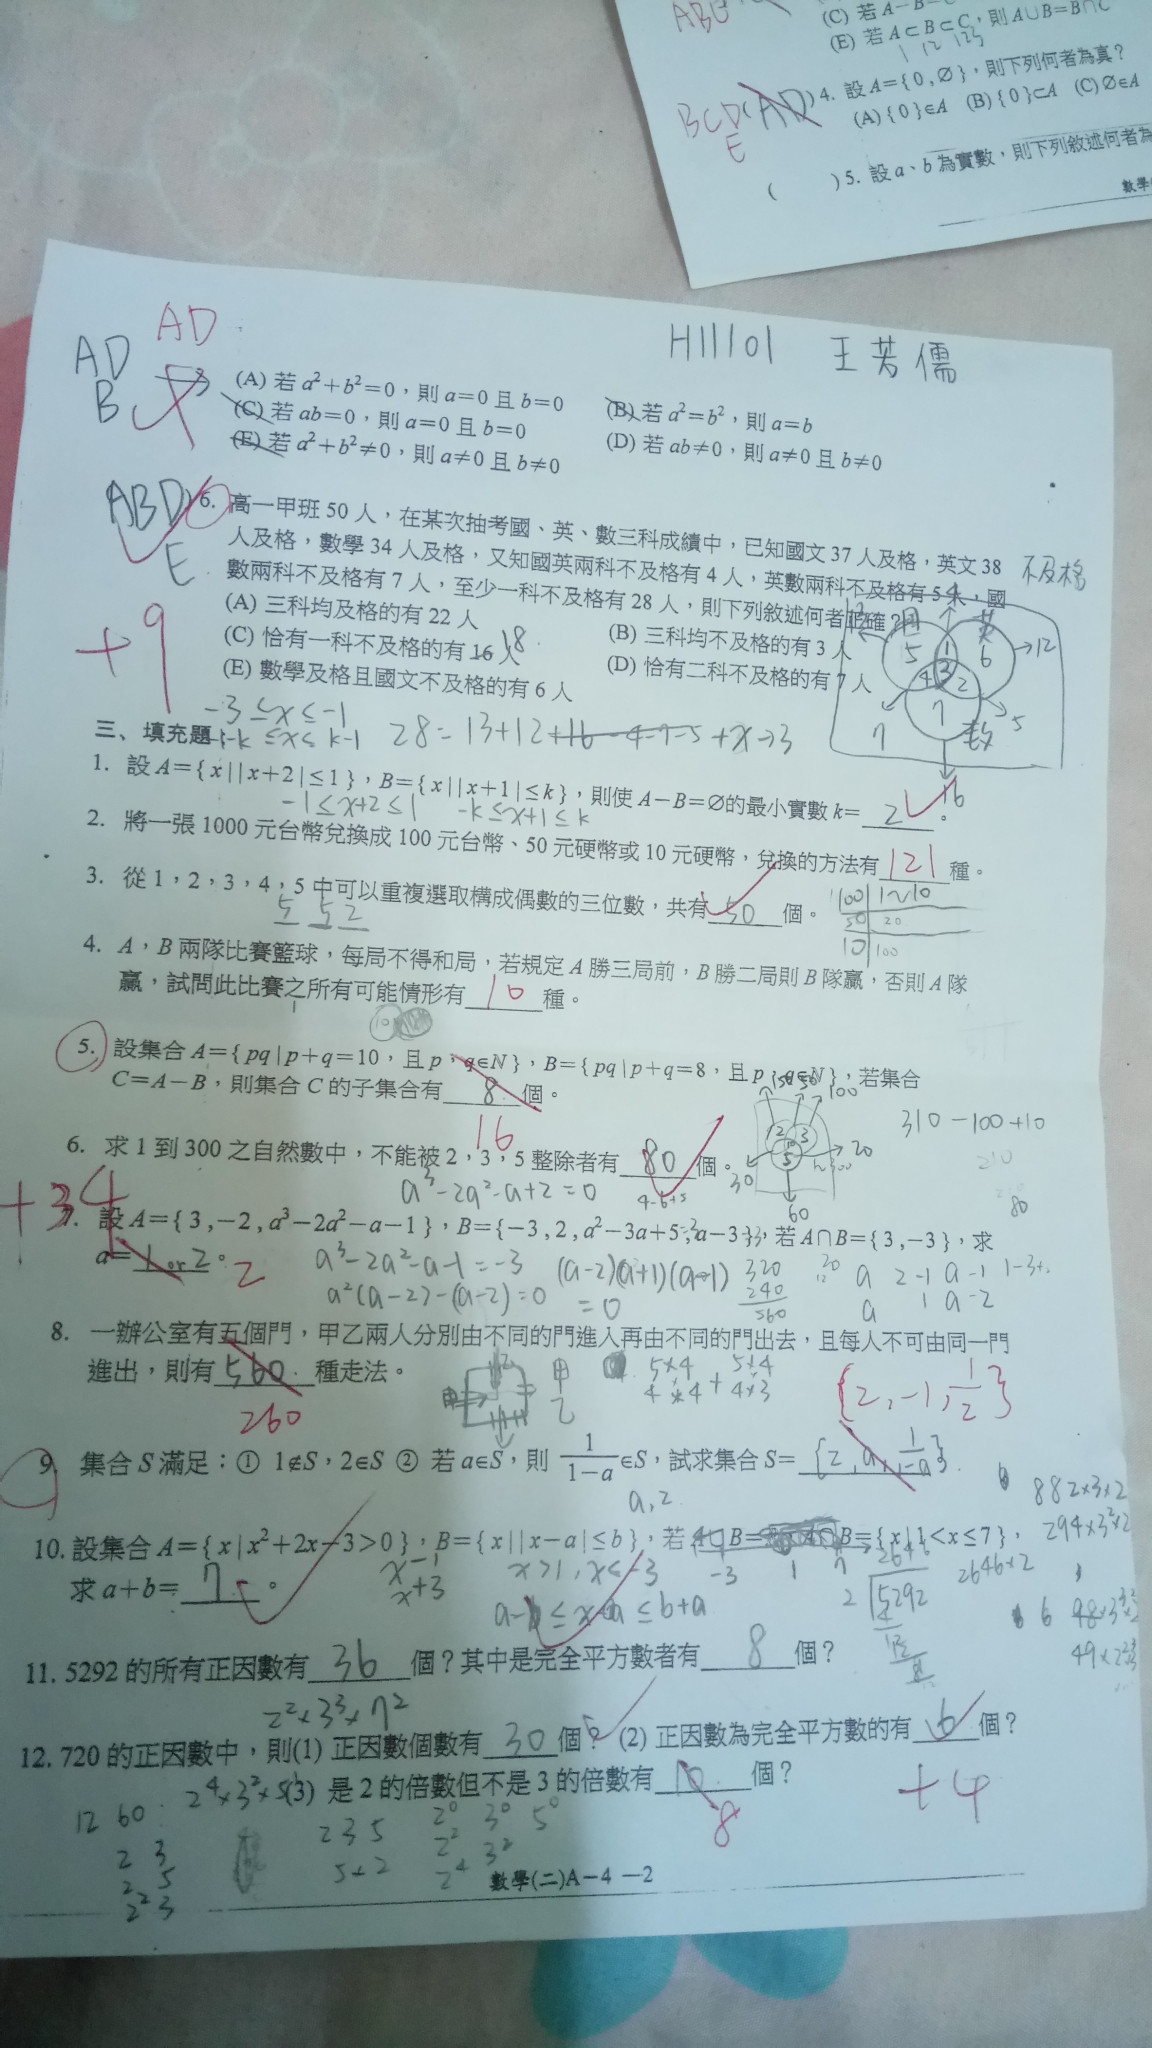 ABE
(C) 若A-B=
(E) 若A⊂B⊂C,則A∪B=B∩C
1 12 123
BCD
E
(AD) 4. 設A={0,∅},則下列何者為真?
(A){0}∈A (B){0}⊂A (C)∅∈A
( ) 5. 設a、b為實數,則下列敘述何者為
數學
H11101 王芳儒
AD
AD
B
(A) 若a²+b²=0,則a=0且b=0
(B) 若a²=b²,則a=b
(C) 若ab=0,則a=0且b=0
(D) 若ab≠0,則a≠0且b≠0
(E) 若a²+b²≠0,則a≠0且b≠0
ABD
E
6. 高一甲班50人,在某次抽考國、英、數三科成績中,已知國文37人及格,英文38
人及格,數學34人及格,又知國英兩科不及格有4人,英數兩科不及格有5人,國
數兩科不及格有7人,至少一科不及格有28人,則下列敘述何者正確?
不及格
(A) 三科均及格的有22人
(B) 三科均不及格的有3人
(C) 恰有一科不及格的有16人
18
(D) 恰有二科不及格的有7人
(E) 數學及格且國文不及格的有6人
國 英 數
+9
-3≤x≤-1
三、填充題
-1-k≤x≤k-1
28=13+12+16-4-7-5+x→3
1. 設A={x||x+2|≤1},B={x||x+1|≤k},則使A-B=∅的最小實數k= 2 。
-1≤x+2≤1 -k≤x+1≤k
2. 將一張1000元台幣兌換成100元台幣、50元硬幣或10元硬幣,兌換的方法有 121 種。
3. 從1,2,3,4,5中可以重複選取構成偶數的三位數,共有 50 個。
5 5 2
100 1~10
50 20
10 100
4. A,B兩隊比賽籃球,每局不得和局,若規定A勝三局前,B勝二局則B隊贏,否則A隊
贏,試問此比賽之所有可能情形有 10 種。
5. 設集合A={pq|p+q=10,且p,q∈N},B={pq|p+q=8,且p,q∈N},若集合
C=A-B,則集合C的子集合有 8 個。
16
310-100+10
6. 求1到300之自然數中,不能被2,3,5整除者有 80 個。
a³-2a²-a+2=0
80
+34
7. 設A={3,-2,a³-2a²-a-1},B={-3,2,a²-3a+5,a-3},若A∩B={3,-3},求
a= 1 or 2 。 2
a³-2a²-a-1=-3 (a-2)(a+1)(a-1)
a²(a-2)-(a-2)=0 =0
320
240
560
8. 一辦公室有五個門,甲乙兩人分別由不同的門進入再由不同的門出去,且每人不可由同一門
進出,則有 560 種走法。
260
甲
乙
5×4 5×4
4×4 + 4×3
{2,-1,1/2}
9. 集合S滿足:① 1∉S,2∈S ② 若a∈S,則 1/(1-a) ∈S,試求集合S= {2,a,1/(1-a)}
a,2
882×3×2
294×3²×2
10. 設集合A={x|x²+2x-3>0},B={x||x-a|≤b},若A∩B={x|1<x≤7},
求a+b= 7 。
x -1
x+3
x>1,x<-3
-3 1 7
a-b≤x≤b+a
2646
2 5292
2646×2
11. 5292的所有正因數有 36 個?其中是完全平方數者有 8 個?
49×2²×3³
2²×3³×7²
12. 720的正因數中,則(1) 正因數個數有 30 個? (2) 正因數為完全平方數的有 6 個?
2⁴×3²×5
(3) 是2的倍數但不是3的倍數有 10 個?
8
+4
12 60
2 3
2 5
2² 3
2 3 5
5×2
2⁰ 3⁰ 5⁰
2² 3²
2⁴
數學(二)A-4 -2